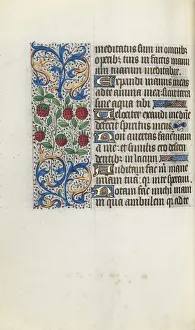 meditatus sum in omnib;
operib; tuis in factis manu
um tuarum meditabar.
Expandi manus meas
ad te anima mea sicut terra
sine aqua tibi
Velociter exaudi me domine
defecit spiritus meus
Non avertas faciem tuam
a me: et similis ero descen
dentib; in lacum
Auditam fac michi mane
miam tuam quia in te speravi.
Notam fac michi viam
in qua ambulem quia ad te